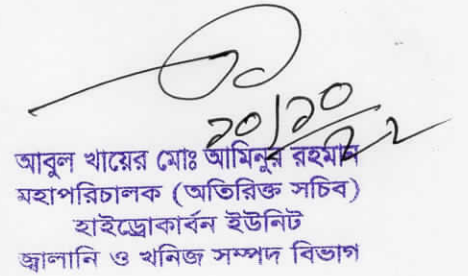 ১০/১০/২২
আবুল খায়ের মোঃ আমিনুর রহমান
মহাপরিচালক (অতিরিক্ত সচিব)
হাইড্রোকার্বন ইউনিট
জ্বালানি ও খনিজ সম্পদ বিভাগ